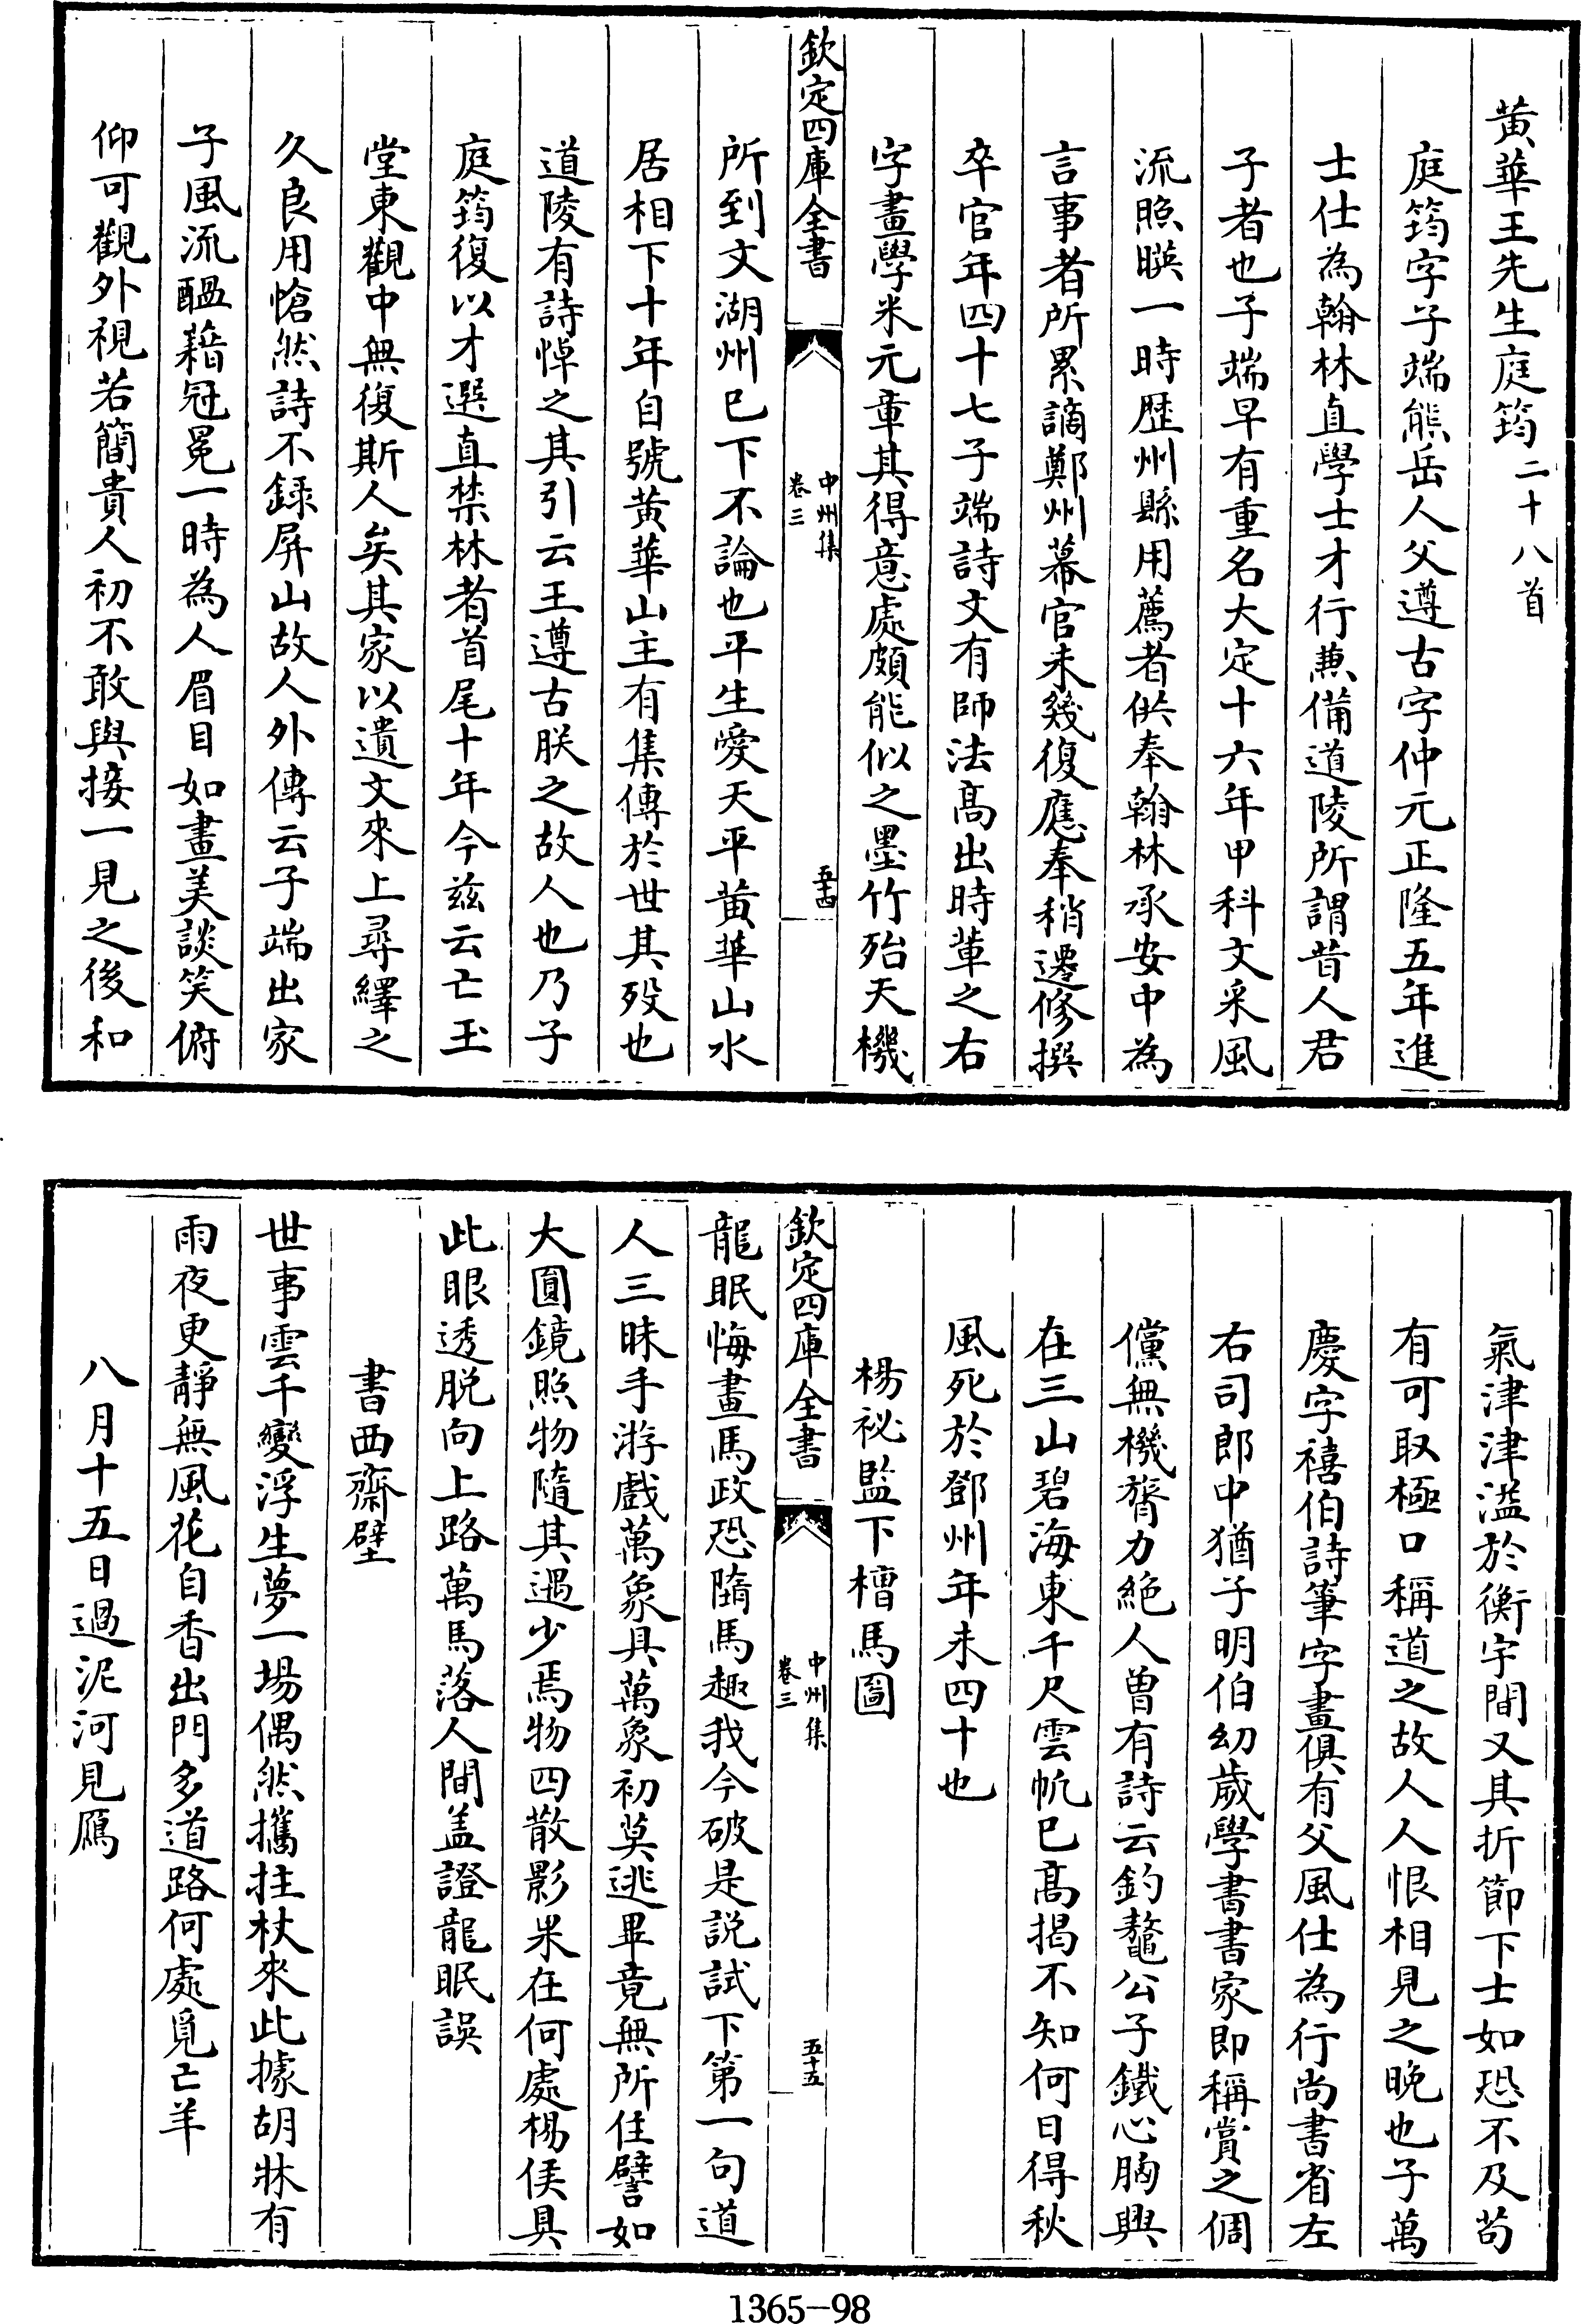 黄華王先生庭筠二十八首
庭筠字子端熊岳人父遵古字仲元正隆五年進
士仕為翰林直學士才行兼備道陵所謂昔人君
子者也子端早有重名大定十六年甲科文采風
流照暎一時歴州縣用薦者供奉翰林承安中為
言事者所累謫鄭州幕官未幾復應奉稍遷修撰
卒官年四十七子端詩文有師法髙出時軰之右
字畫學米元章其得意處頗能似之墨竹殆天機
欽定四庫全書
中州集
卷三
五十四
所到文湖州已下不論也平生愛天平黄華山水
居相下十年自號黄華山主有集傳於世其殁也
道陵有詩悼之其引云王遵古朕之故人也乃子
庭筠復以才選直禁林者首尾十年今兹云亡玉
堂東觀中無復斯人矣其家以遺文來上尋繹之
久良用愴然詩不録屏山故人外傳云子端出家
子風流醖藉冠冕一時為人眉目如畫美談笑俯
仰可觀外視若簡貴人初不敢與接一見之後和
氣津津溢於衡宇間又其折節下士如恐不及苟
有可取極口稱道之故人人恨相見之晚也子萬
慶字禧伯詩筆字畫俱有父風仕為行尚書省左
右司郎中猶子明伯幼歲學書書家即稱賞之倜
儻無機膂力絶人曾有詩云釣鼇公子鐵心胸興
在三山碧海東千尺雲帆已髙揭不知何日得秋
風死於鄧州年未四十也
楊祕監下槽馬圖
欽定四庫全書
中州集
卷三
五十五
龍眠悔畫馬政恐墮馬趣我今破是説試下第一句道
人三昧手游戲萬象具萬象初莫逃畢竟無所住譬如
大圓鏡照物隨其遇少焉物四散影果在何處楊侯具
此眼透脱向上路萬馬落人間盖證龍眠誤
書西齋壁
世事雲千變浮生夢一場偶然攜拄杖來此據胡牀有
雨夜更靜無風花自香出門多道路何處覓亡羊
八月十五日過泥河見鴈
1365-98